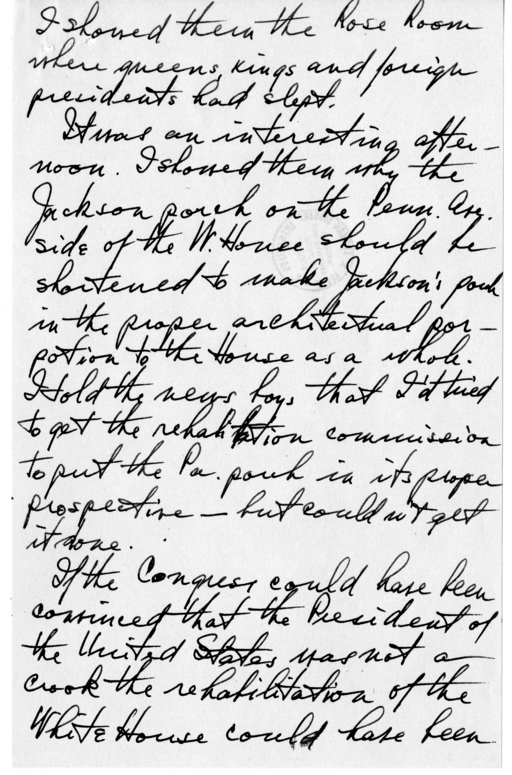 I showed them the Rose Room
where queens, kings and foreign
presidents had slept.
It was an interesting after-
noon. I showed them why the
Jackson porch on the Penn. Ave.
side of the W. House should be
shortened to make Jackson's porch
in the proper architectual por-
potion to the House as a whole.
I told the news boys that I'd tried
to get the rehabiltation commission
to put the Pa. porch in its proper
prospective — but couldn't get
it done.
If the Congress could have been
convinced that the President of
the United States was not a
crook the rehabilitation of the
White House could have been